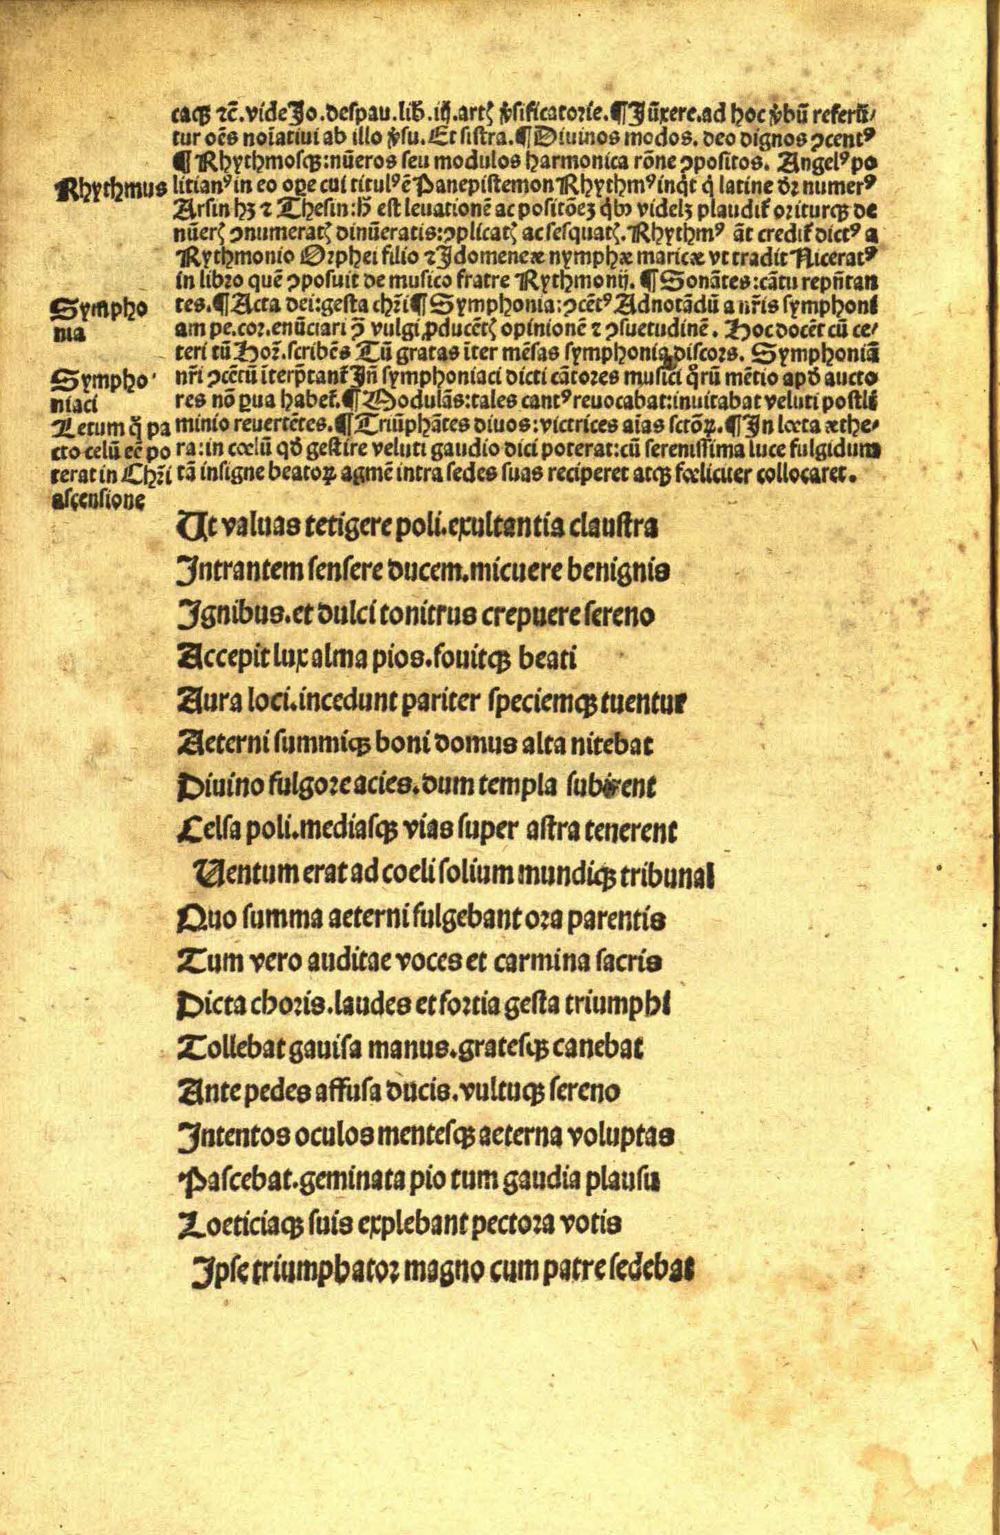 caqꝫ ⁊c̄. vide Jo. despau. lib̄. iij. artꝭ v̓sificatorie. ¶ Jūxere. ad hoc v̓bū referū/
tur oēs noīatiui ab illo v̓su. Et sistra. ¶ Diuinos modos. deo dignos ↄcentꝰ
¶ Rhythmosqꝫ: nūeros seu modulos harmonica rōne ↄpositos. Angelꝰ po
Rhythmus
litianꝰ in eo oꝑe cui titulꝰ ē Panepistemon Rhythmꝰ inqͥt qͥ latine dr̄ numerꝰ
Arsin hꝫ ⁊ Thesin: hͦ est leuationē ac positōeꝫ qͥbꝰ videlꝫ plaudit̄ oriturqꝫ de
nūerꝭ ↄnumeratꝭ dinūeratis: ↄplicatꝭ ac sesquatꝭ. Rhythmꝰ āt credit̄ dictꝰ a
Rythmonio Orphei filio ⁊ Jdomeneæ nymphæ maricæ vt tradit Niceratꝰ
in libro quē ↄposuit de musico fratre Rythmonij. ¶ Sonātes: cātu repn̄tan
Sympho
nia
tes. ¶ Acta dei: gesta chr̄i ¶ Symphonia: ↄcētꝰ Adnotādū a nr̄is symphoni
am pe. cor. enūciari ↄ̄ vulgi ꝓducētꝭ opinionē ⁊ ↄsuetudinē. Hoc docēt cū ce/
teri tū Hor̄. scribēs Tū gratas īter mēsas symphonia discors. Symphoniā
Sympho
niaci
nr̄i ↄcētū īterp̄tant̄ Jn̄ symphoniaci dicti cātores musici qͦrū mētio apd̓ aucto
res nō ꝑua habet̄. ¶ Modulās: tales cantꝰ reuocabat: inuitabat veluti postli
Letum qͥ pa
cto celū eē po
terat in Chr̄i
ascensione
minio reuertētes. ¶ Triūphātes diuos: victrices aīas sctōꝝ. ¶ Jn læta æthe/
ra: in cœlū qd̓ gestire veluti gaudio dici poterat: cū serenissima luce fulgidum
tā insigne beatoꝝ agmē intra sedes suas reciperet atqꝫ fœliciter collocaret.
Ut valuas tetigere poli. exultantia claustra
Jntrantem sensere ducem. micuere benignis
Jgnibus. et dulci tonitrus crepuere sereno
Accepit lux alma pios. fouitqꝫ beati
Aura loci. incedunt pariter speciemqꝫ tuentur
Aeterni summiqꝫ boni domus alta nitebat
Diuino fulgore acies. dum templa subirent
Celsa poli. mediasqꝫ vias super astra tenerent
Uentum erat ad coeli solium mundiqꝫ tribunal
Quo summa aeterni fulgebant ora parentis
Tum vero auditae voces et carmina sacris
Dicta choris. laudes et fortia gesta triumphi
Tollebat gauisa manus. gratesqꝫ canebat
Ante pedes affusa ducis. vultuqꝫ sereno
Jntentos oculos mentesqꝫ aeterna voluptas
Pascebat. geminata pio tum gaudia plausu
Loeticiaqꝫ suis explebant pectora votis
Jpse triumphator magno cum patre sedebat